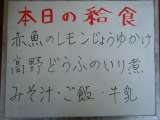 本日の給食
赤魚のレモンじょうゆかけ
高野どうふのいり煮
みそ汁・ご飯・牛乳